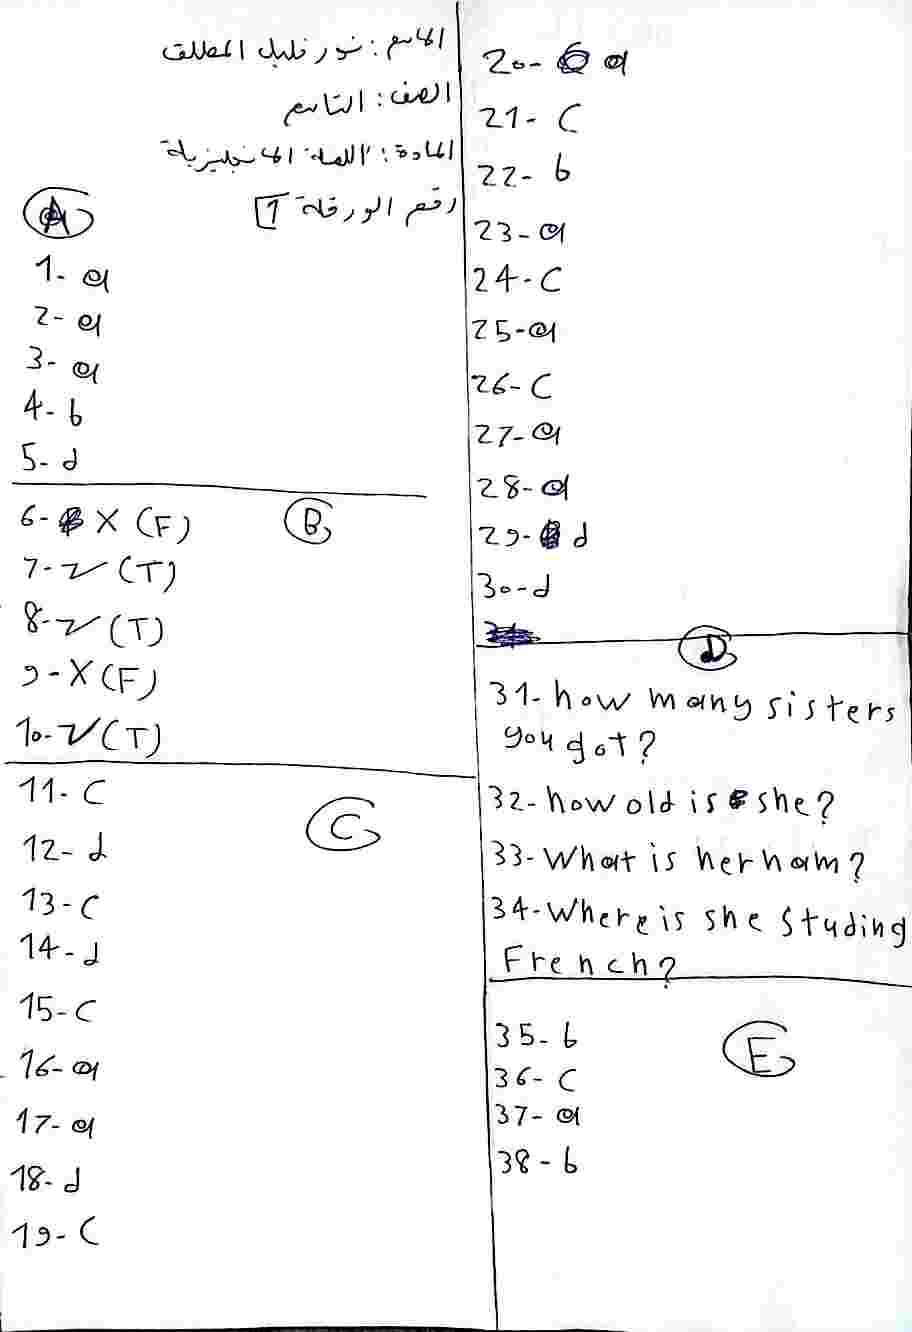 الاسم: نور خليل المطلق
الصف: التاسع
المادة: اللغة الانجليزية
رقم الورقة 1
A
1- a
2- a
3- a
4- b
5- d
B
6- X (F)
7- ✓ (T)
8- ✓ (T)
9- X (F)
10- ✓ (T)
C
11- C
12- d
13- C
14- d
15- C
16- a
17- a
18- d
19- C
20- a
21- C
22- b
23- a
24- C
25- a
26- C
27- a
28- a
29- d
30- d
D
31- how many sisters
you got?
32- how old is she?
33- What is her nam?
34- Where is she Studing
French?
E
35- b
36- C
37- a
38- b